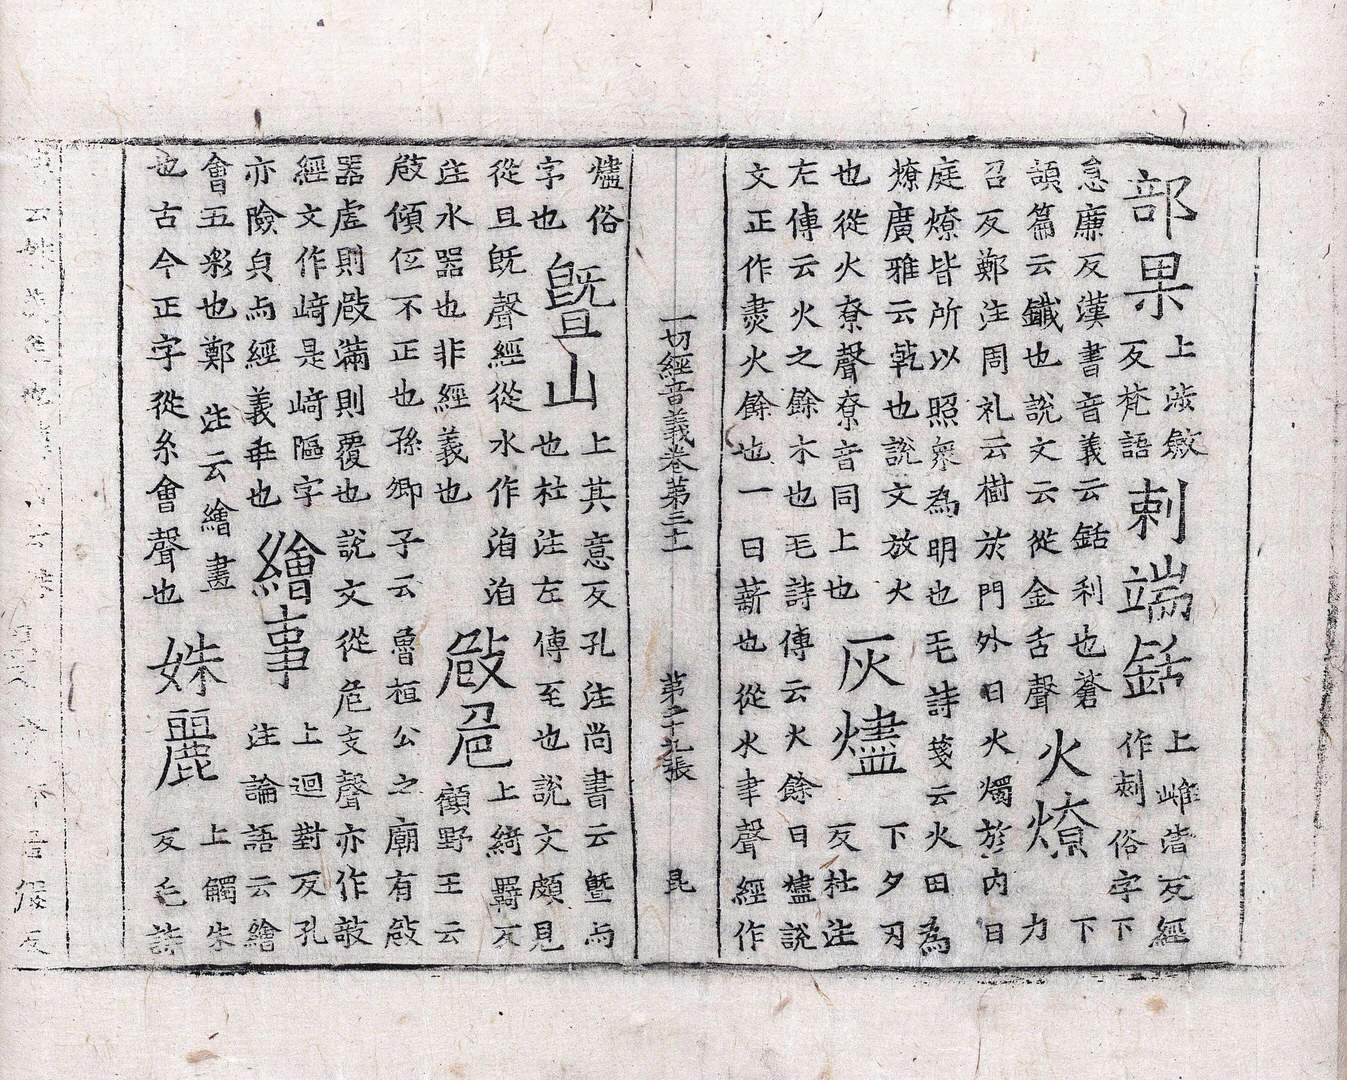 部果上涉斂反梵語刺端銛上雌漬反經作刺俗字下
息廉反漢書音義云銛利也蒼頡篇云鐵也說文云從金舌聲火燎下力
召反鄭注周礼云樹於門外曰火燭於內曰庭燎皆所以照衆為明也毛詩箋云火田為
燎廣雅云乾也說文放火也從火尞聲尞音同上也灰燼下夕刃反杜注
左傳云火之餘木也毛詩傳云火餘曰燼說文正作㶳火餘也一曰薪也從火聿聲經作
一切經音義卷第三十一 第二十九張 昆
燼俗字也曁山上其意反孔注尚書云曁与也杜注左傳至也說文頗見
從旦旣聲經從水作洎洎注水器也非經義也㩻危上綺羇反顧野王云
㩻傾仄不正也孫卿子云魯桓公之廟有㩻器虛則㩻滿則覆也說文從危支聲亦作敧
經文作﨑是﨑嶇字亦險皃与經義乖也繪事上迴對反孔注論語云繪
會五彩也鄭注云繪畫也古今正字從糸會聲也姝麗上觸朱反毛詩